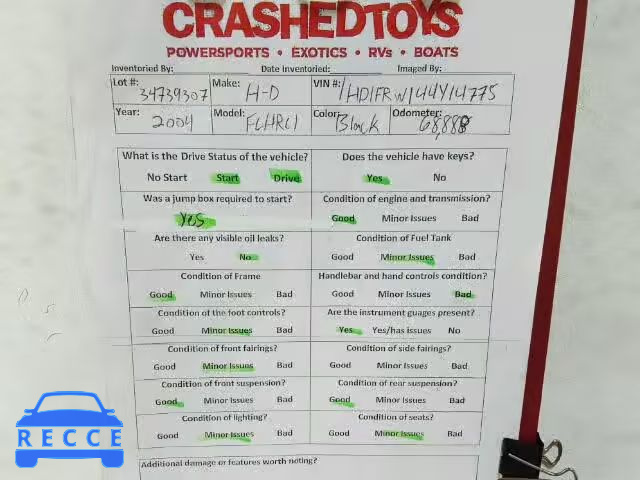 CRASHEDTOYS
POWERSPORTS • EXOTICS • RVs • BOATS
Inventoried By: Date Inventoried: Imaged By:
Lot #: 34739307 Make: H-D VIN #: 1HD1FRW144Y14775
Year: 2004 Model: FLHRCI Color: Black Odometer: 68,888
What is the Drive Status of the vehicle? Does the vehicle have keys?
No Start Start Drive Yes No
Was a jump box required to start? Condition of engine and transmission?
YES Good Minor Issues Bad
Are there any visible oil leaks? Condition of Fuel Tank
Yes No Good Minor Issues Bad
Condition of Frame Handlebar and hand controls condition?
Good Minor Issues Bad Good Minor Issues Bad
Condition of the foot controls? Are the instrument guages present?
Good Minor Issues Bad Yes Yes/has issues No
Condition of front fairings? Condition of side fairings?
Good Minor Issues Bad Good Minor Issues Bad
Condition of front suspension? Condition of rear suspension?
Good Minor Issues Bad Good Minor Issues Bad
Condition of lighting? Condition of seats?
Good Minor Issues Bad Good Minor Issues Bad
Additional damage or features worth noting?
RECCE